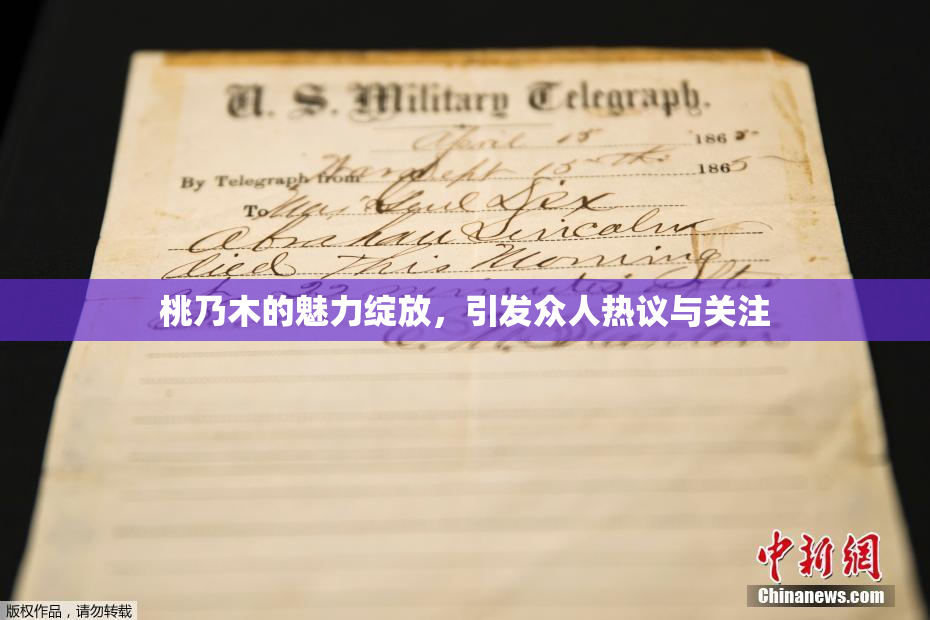 U. S. Military Telegraph.
April 15 1865
By Telegraph from War Dept 15th 1865
To Maj Genl Dix
Abraham Lincoln
died This Morning
at 22 minutes after
桃乃木的魅力绽放，引发众人热议与关注
E. M. Stanton
中新网
Chinanews.com
版权作品，请勿转载